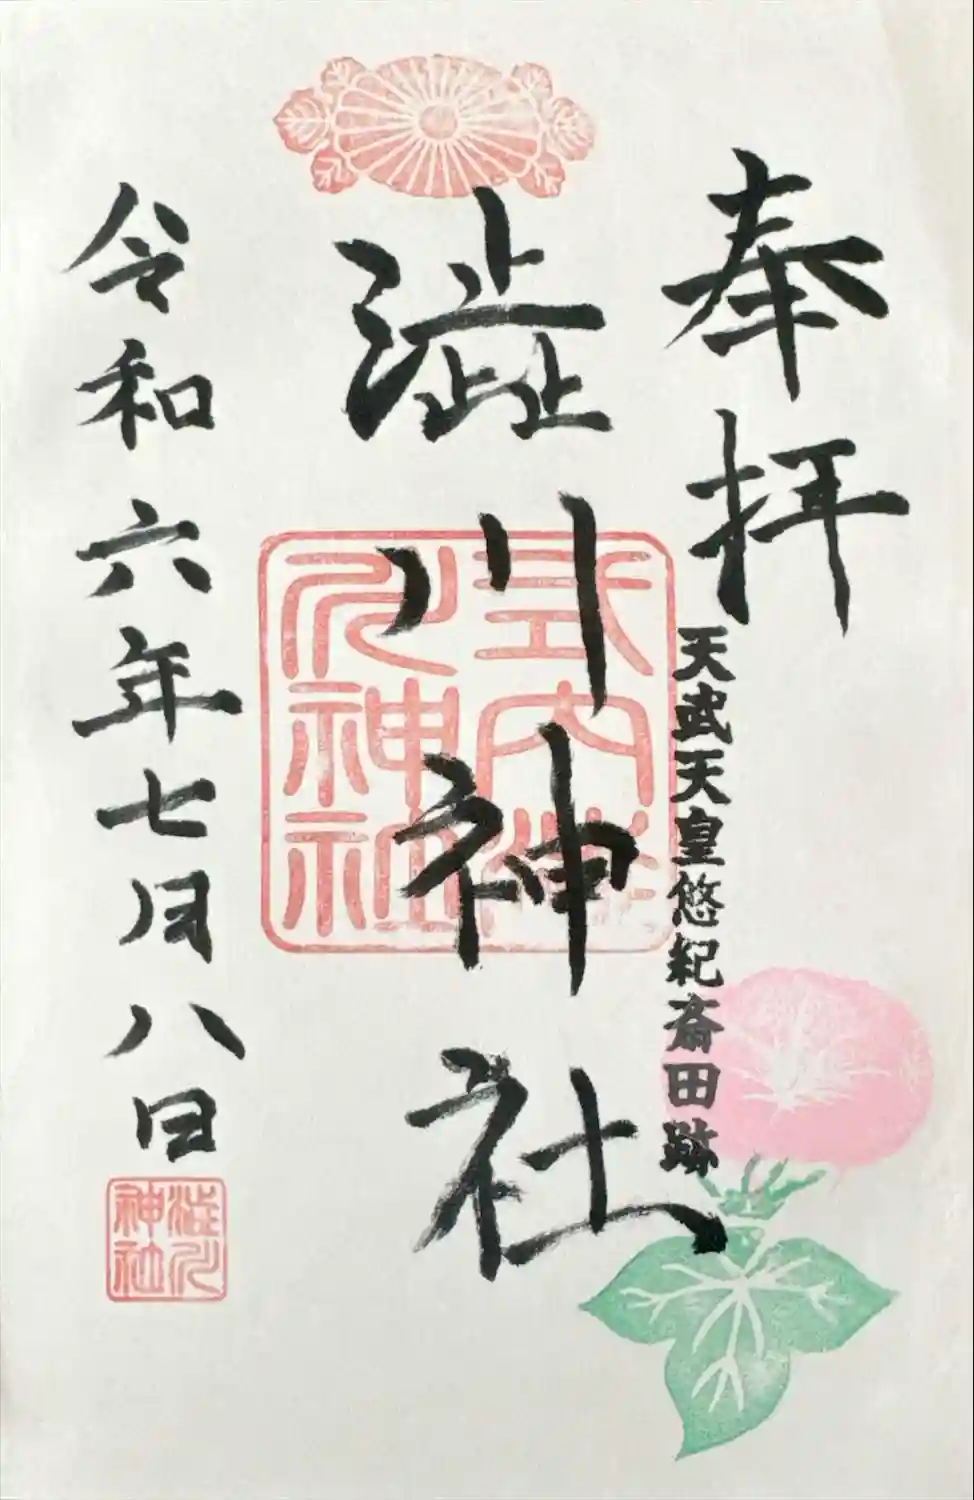 奉拝
天武天皇悠紀斎田跡
澁川神社
式内澁
川神社
令和六年七月八日
澁川
神社